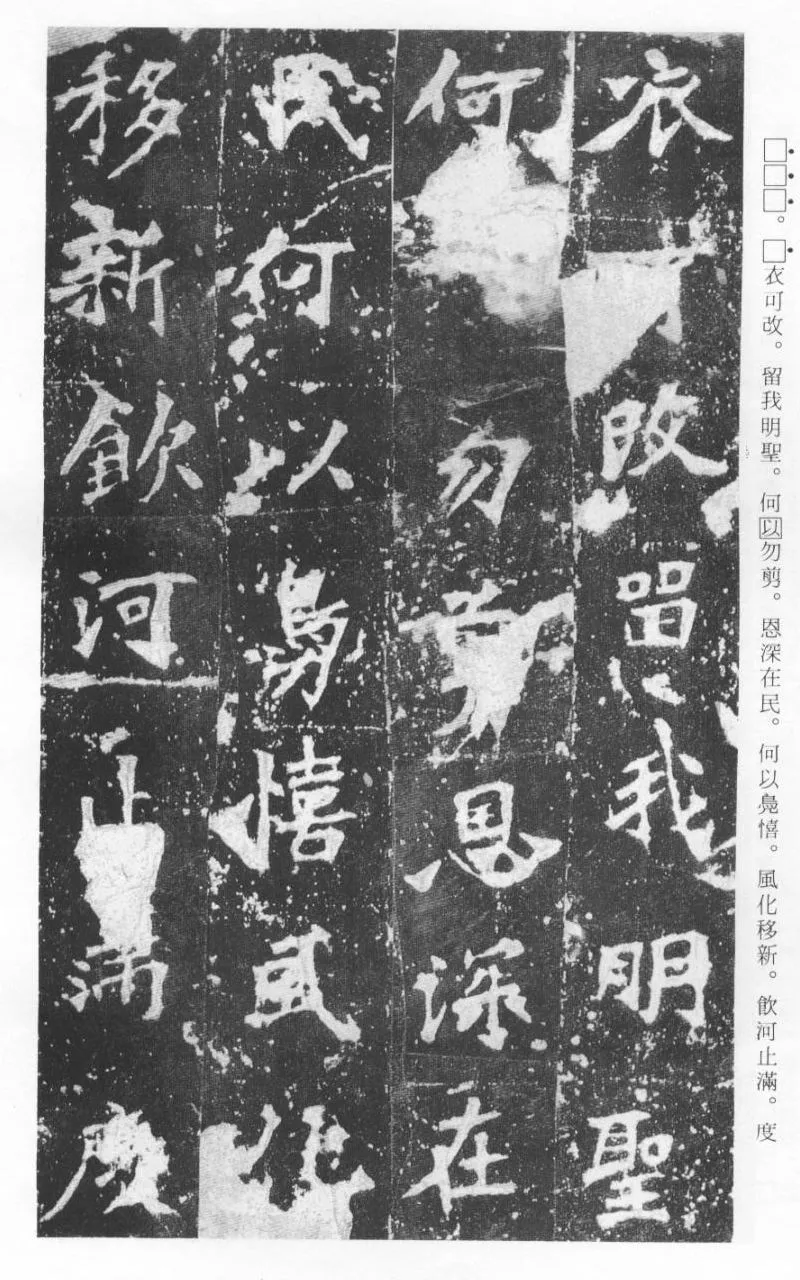 □□□。□衣可改。留我明聖。何以勿剪。恩深在民。何以鳧憘。風化移新。飲河止滿。度
衣可改留我明聖
何勿剪恩深在
民何以鳧憘風化
移新飲河止滿度